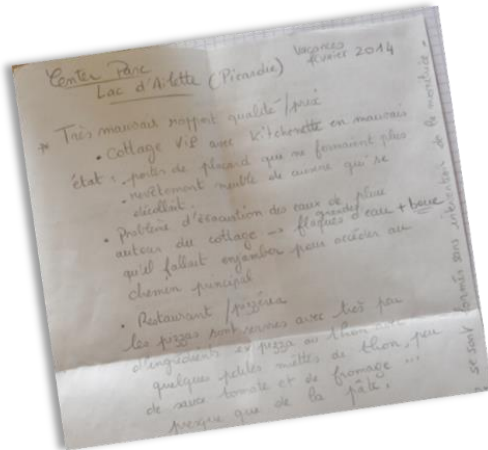 Center Parc
Lac d'Ailette (Picardie)
Vacances
février 2014
Très mauvais rapport qualité/prix
• Cottage VIP avec Kitchenette en mauvais
état : portes de placard qui ne fermaient plus
- revêtement meuble de cuisine qui se
décollent.
• Problème d'évacuation des eaux de pluie
autour du cottage → grandes flaques d'eau + boue
qu'il fallait enjamber pour accéder au
chemin principal
• Restaurant / pizzéria
les pizzas sont servies avec très peu
d'ingrédients ex pizza au thon avec
quelques petites miettes de thon, peu
de sauce tomate et de fromage ...
presque que de la pâte.
se sont formés sans intervention de la